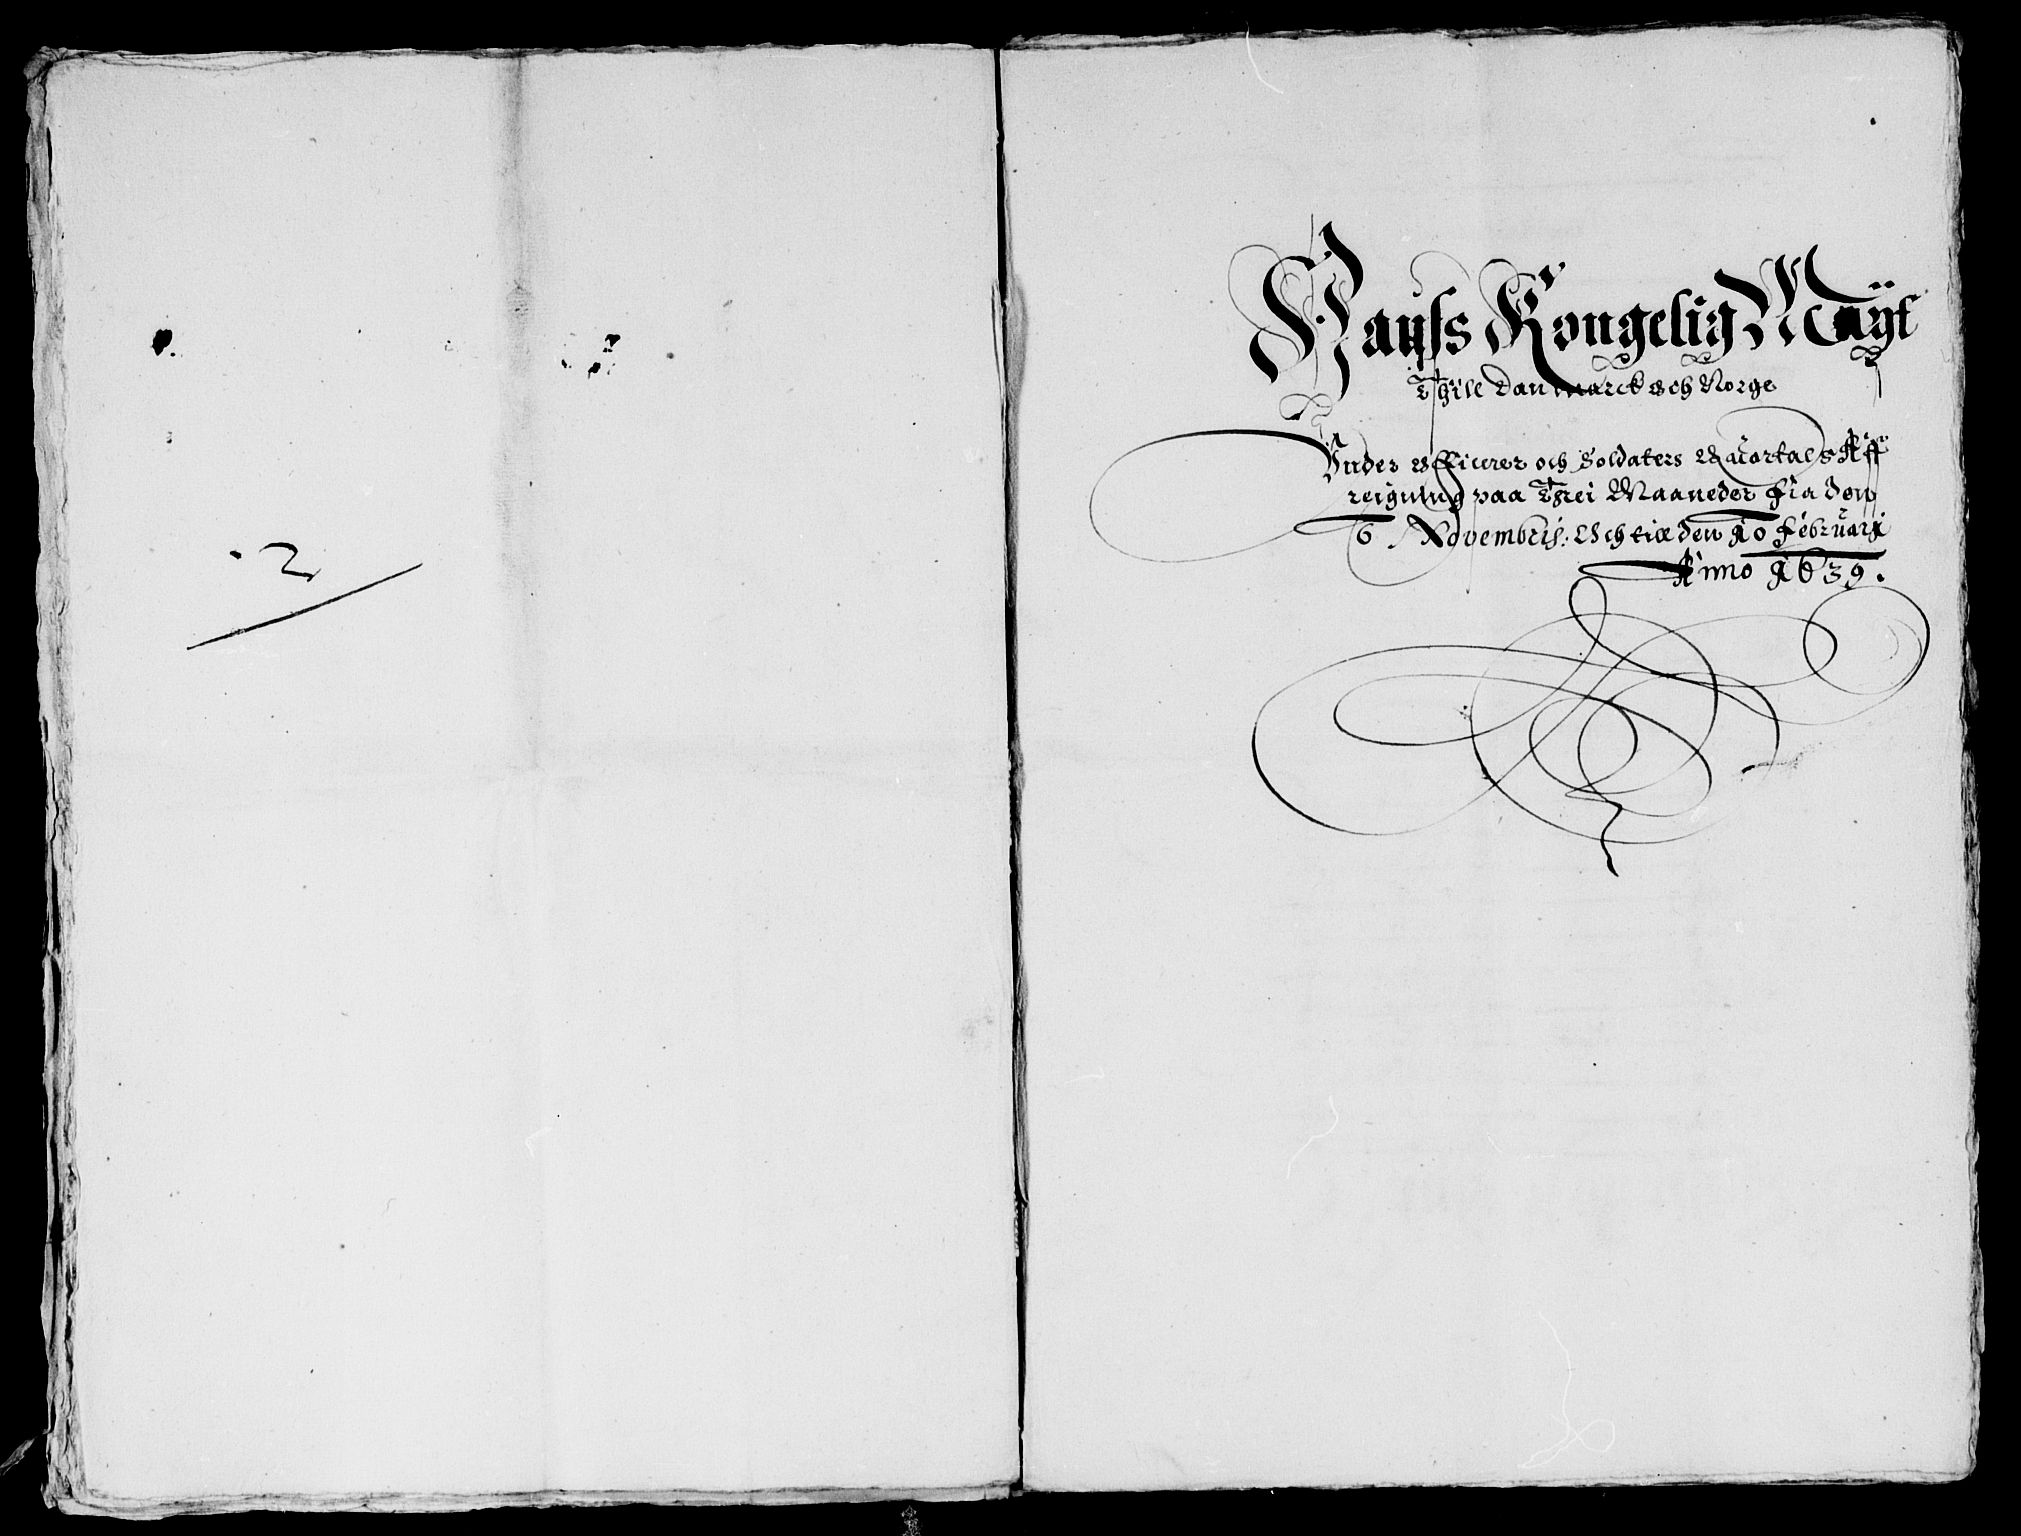 2
Hanss Kongelig Mayt
Thill Danmarck och Norge
Under officerer och Soldaters Quartals Aff
reigning paa Threi Maaneder Fra den
6 Novembris: Och till den 10 Februarij
Anno 1639.